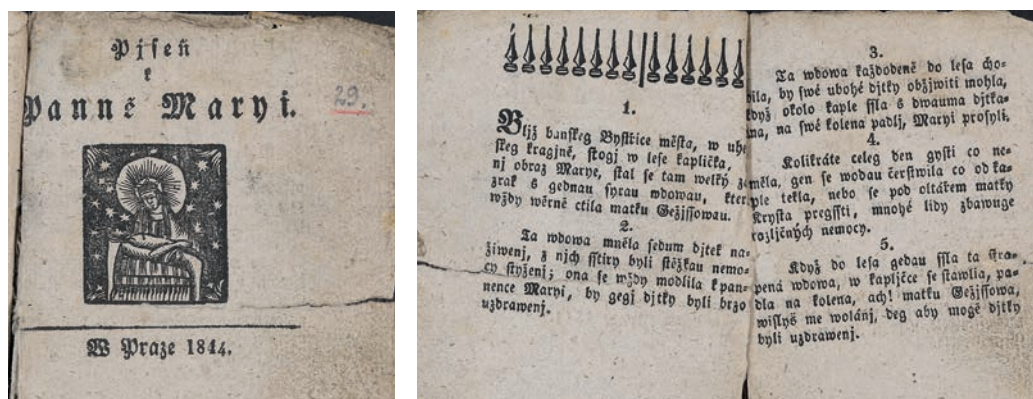 Pjſeň
k
Panně Maryi.
29.
W Praze 1844.
1.
Bljž banſkeg Byſtřice města, w uhe
ſkeg kragjně, ſtogj w leſe kaplička,
nj obraz Marye, ſtal ſe tam welký zá
zrak s gednau ſyrau wdowau, kter
wždy wěrně ctila matku Gežjſſowau.
2.
Ta wdowa mněla ſedum djtek na=
žiwenj, z njch ſſtiry byli ſtěžkau nemo=
cy ſtjženj; ona ſe wždy modlila k pan=
nence Maryi, by gegj djtky byli brzo
uzdrawenj.
3.
Ta wdowa každodeně do leſa cho=
dila, by ſwé ubohé djtky obžjwiti mohla,
když okolo kaple ſſla s dwauma djtka=
ma, na ſwé kolena padlj, Maryi proſyli.
4.
Kolikráte celeg den gyſti co ne=
měla, gen ſe wodau čerſtwila co od ka=
ple tekla, nebo ſe pod oltářem matky
Kryſta pregſſti, mnohé lidy zbawuge
rozljčných nemocy.
5.
Když do leſa gedau ſſla ta ſtra=
pená wdowa, w kapljčce ſe ſtawila, pa=
dla na kolena, ach! matku Gežjſſowa,
wiſlyš me wolánj, deg aby mogé djtky
byli uzdrawenj.